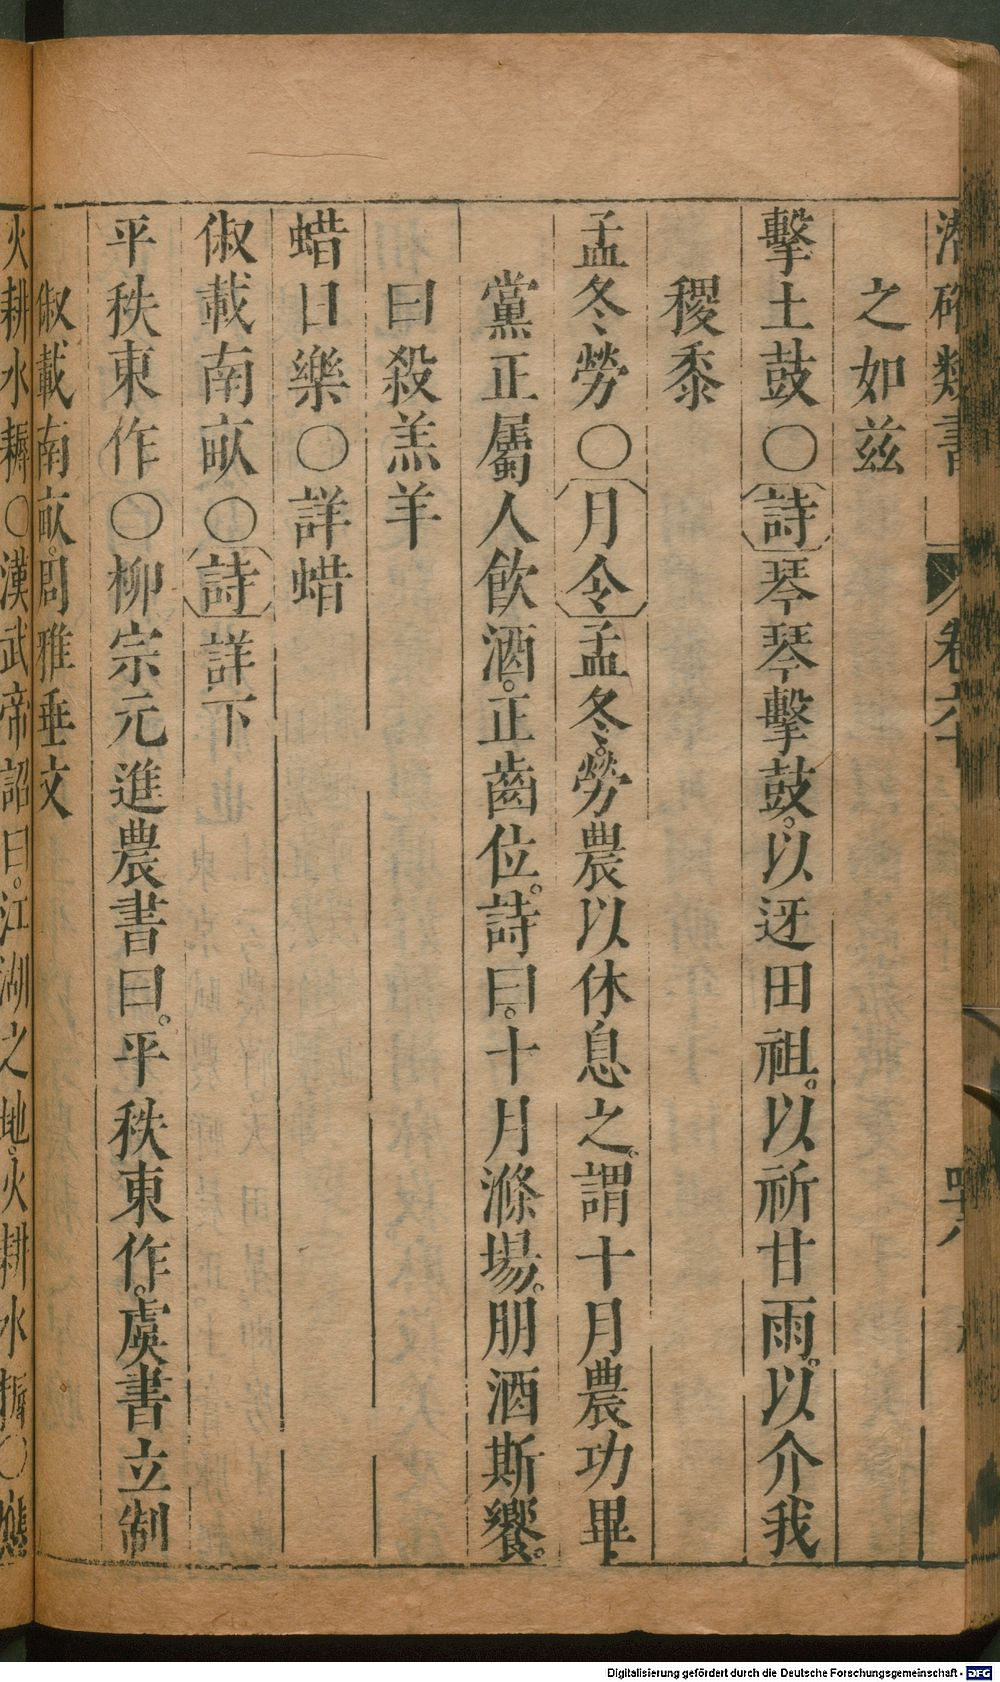 潛確類書 卷六十
之如茲
擊土鼓○詩琴琴擊鼓。以迓田祖。以祈甘雨。以介我
稷黍
孟冬勞○月令孟冬。勞農以休息之。謂十月農功畢
黨正屬人飲酒。正齒位。詩曰。十月滌場。朋酒斯饗。
曰殺羔羊
蜡日樂○詳蜡
俶載南畝○詩詳下
平秩東作○柳宗元進農書曰。平秩東作。虞書立制
俶載南畝。周雅垂文
火耕水耨○漢武帝詔曰。江湖之地。火耕水耨○
Digitalisierung gefördert durch die Deutsche Forschungsgemeinschaft - DFG